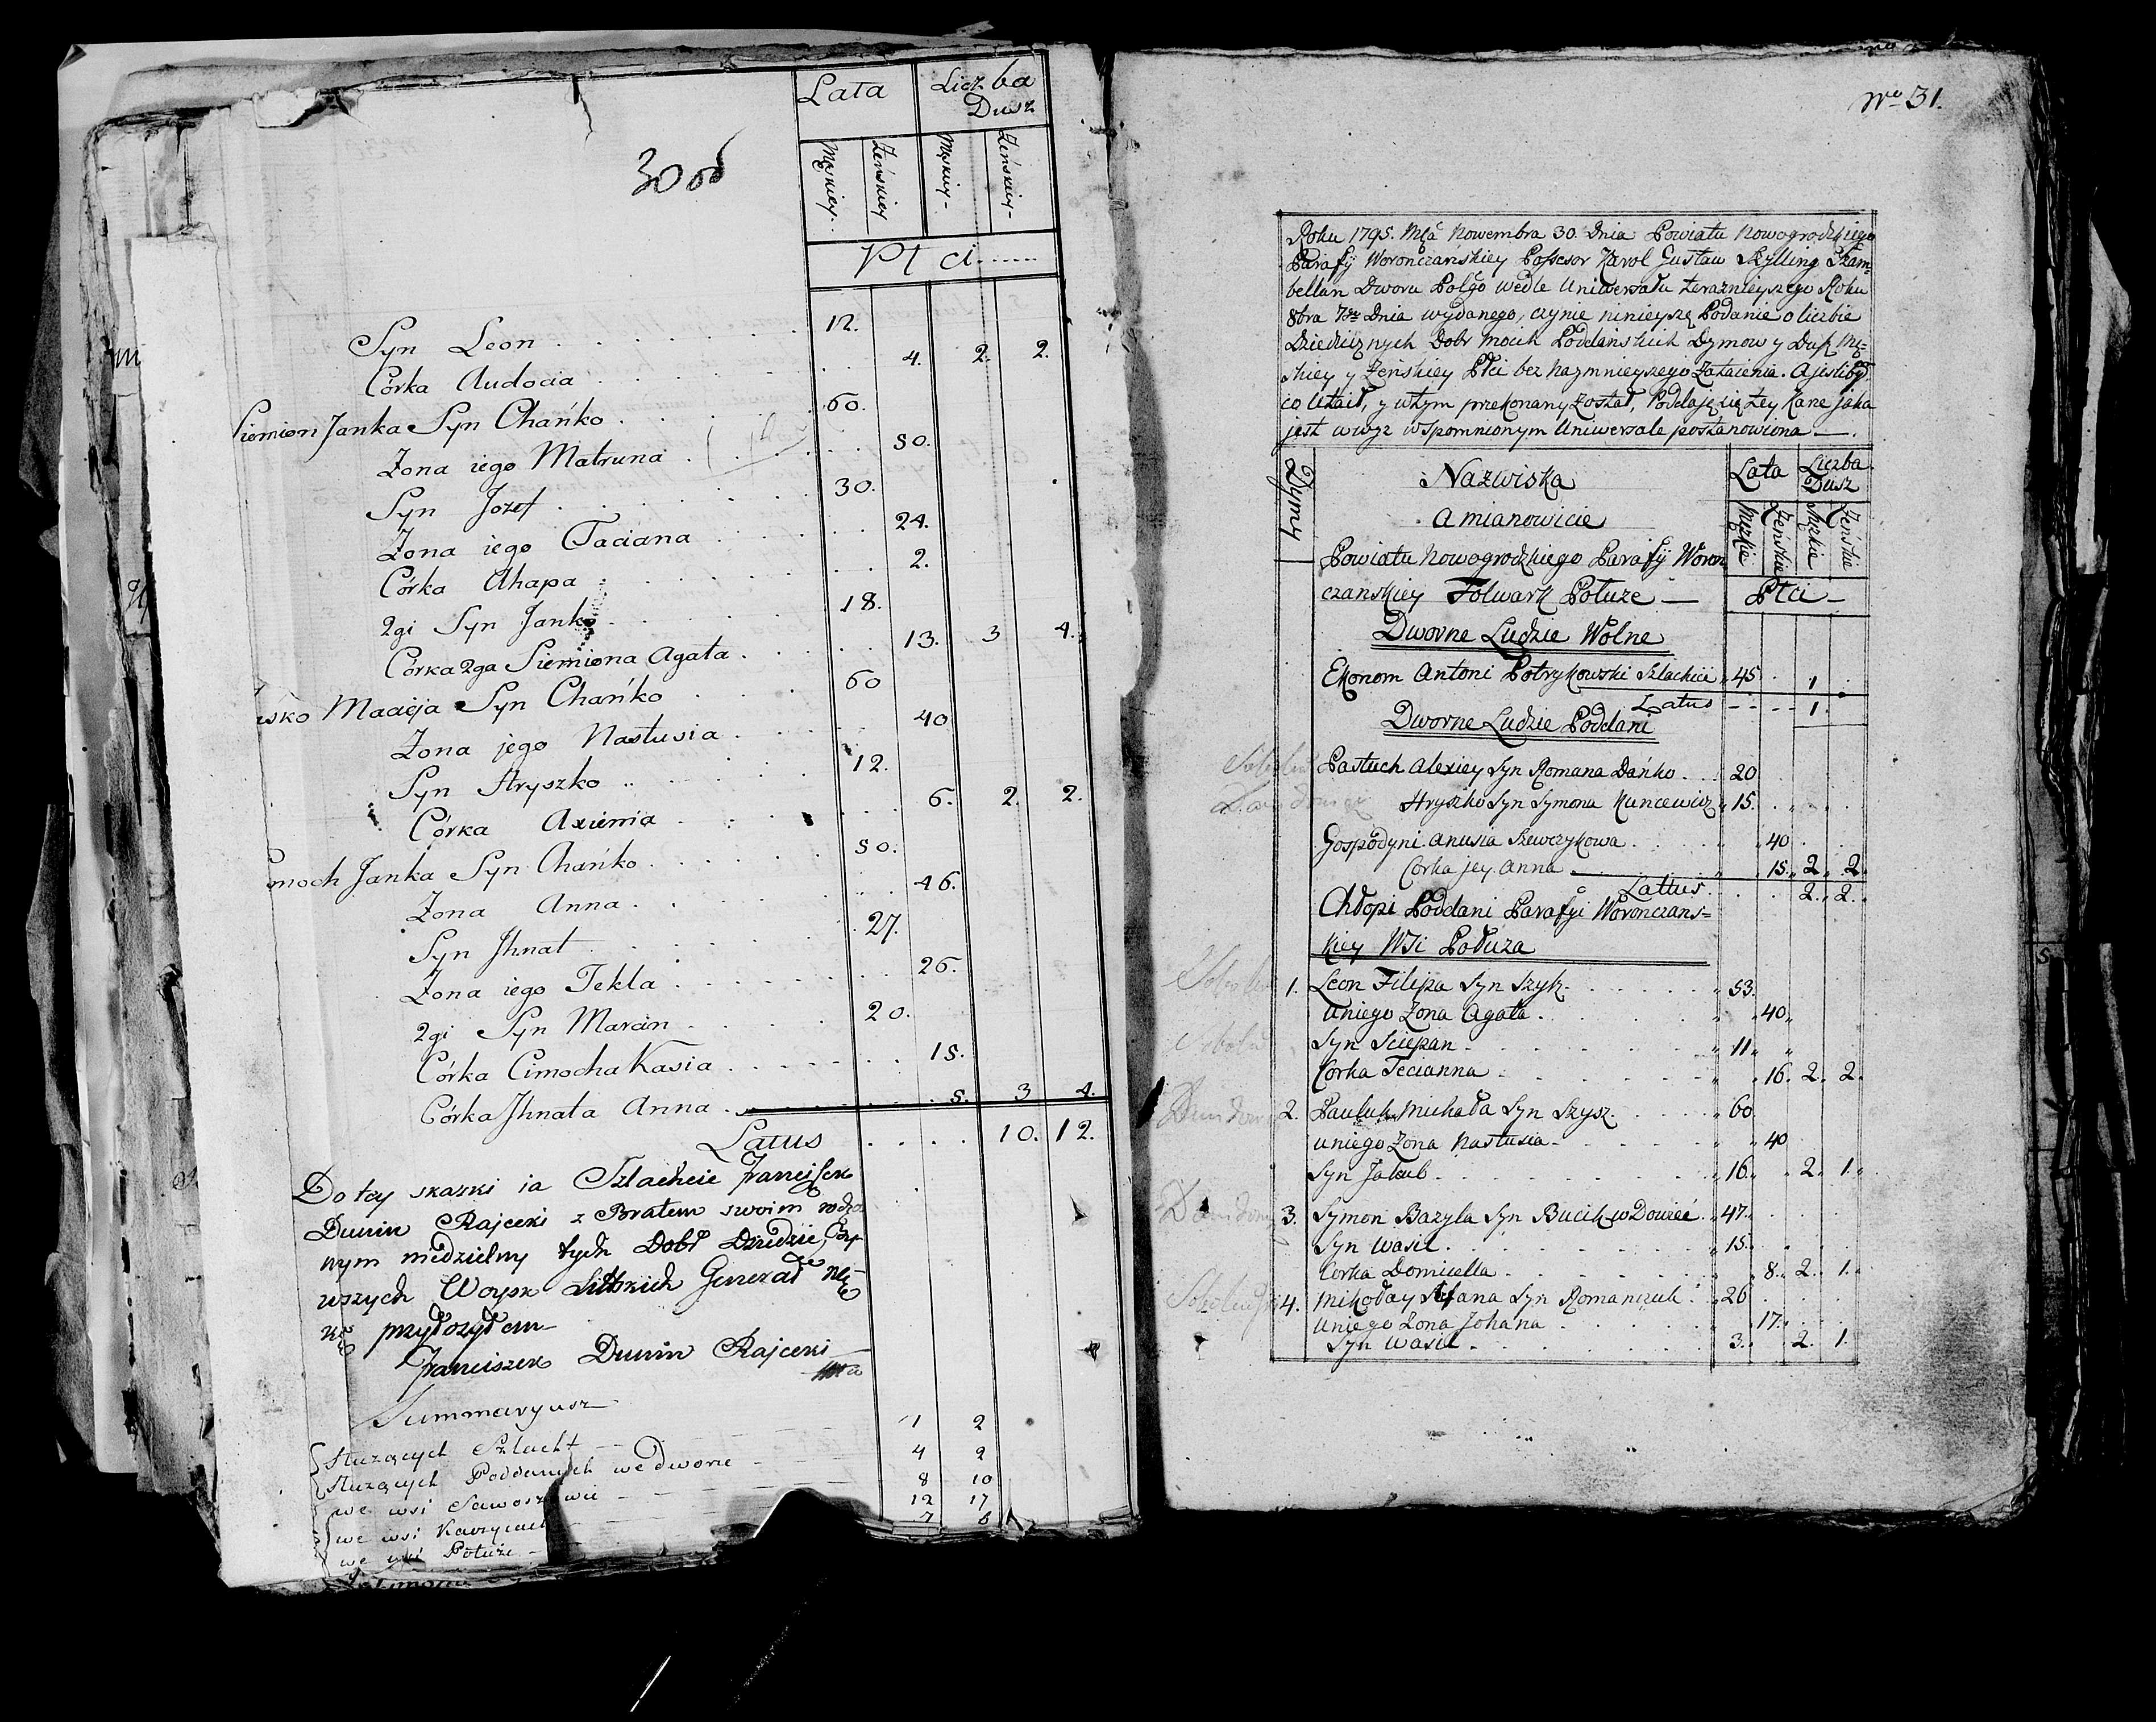 30 об
Lata Liczba Dusz
Męskiey Żeńskiey Męskiey Żeńskiey
Płci
Syn Leon 12.
Córka Audocia 4. 2. 2.
Siemion Janka Syn Chańko 60.
Żona iego Matruna 50.
Syn Jozef 30.
Żona iego Taciana 24.
Córka Ahapa 2.
2gi Syn Janko 18.
Córka 2ga Siemiona Agata 13. 3 4.
Macieja Syn Chańko 60
Żona jego Nastusia 40
Syn Hryszko 12.
Córka Axienia 6. 2. 2.
Janka Syn Chańko 50.
Żona Anna 46.
Syn Jhnat 27.
Żona iego Tekla 26.
2gi Syn Marcin 20.
Córka Cimocha Kasia 15.
Córka Jhnata Anna 5. 3 4.
Latus 10. 12.
Do tey skazki ia Szlachcic Franciszek
Dunin Rajecki z Bratem swoim rodzo
nym niedzielny tych Dobr Dziedzic, By
wszych Woysk Littskich Generał rę
kę przyłożyłem
Franciszek Dunin Rajecki
Summaryusz
Służących Szlacht 1 2
Służących Poddanych we dworze 4 2
we wsi 8 10
we wsi 12 17
we wsi Połuże 7 6
No 31.
Roku 1795. Mca Nowembra 30. Dnia Powiatu Nowogrodzkiego
Parafij Worończańskiey Possesor Karol Gustaw Szylling Szam=
bellan Dworu Polgo wedle Uniwersału teraznieyszego Roku
8bra 7go Dnia wydanego, czynię ninieyszę Podanie o liczbie
Dziedzicznych Dobr Moich Poddańskich Dymow y Dusz Mę=
skiey y Żeńskiey Płci bez naymnieyszego Zataienia. A jesliby
co Utaił, y w tym przekonany został, Poddaję się tey Karze jaka
jest w wyż wspomnionym Uniwersale postanowiona —.
Dymy Nazwiska Lata Liczba Dusz
a mianowicie Męzkie Żeńskie Męzkie Żeńskie
Powiatu Nowogrodzkiego Parafij Woron
czanskiey Folwark Połuże — Płci —
Dworne Ludzie Wolne
Ekonom Antoni Potrykowski Szlachcic 45 1
Latus 1.
Dworne Ludzie Poddani
Pastuch Alexiey Syn Romana Dańko 20
Hryszko Syn Symona Kuncewicz 15.
Gospodyni Anusia Szewczykowa 40
Corka jey Anna 15. 2. 2.
Lattus 2. 2.
Chłopi Poddani Parafyi Woronczans=
kiey Wsi Połuża
1. Leon Filipa Syn Szyk 53.
Uniego Żona Agata 40
Syn Sciepan 11
Corka Tecianna 16. 2. 2.
2. Pauluk Michała Syn Szysz 60
uniego Żona Nastusia 40
Syn Jakub 16. 2. 1.
3. Symon Bazyla Syn Bucik wDowieć 47.
Syn Wasil 15.
Corka Domicella 8. 2. 1.
4. Mikołay Stefana Syn Romanczuk 26
Uniego Żona Johana 17.
Syn Wasil 3. 2. 1.